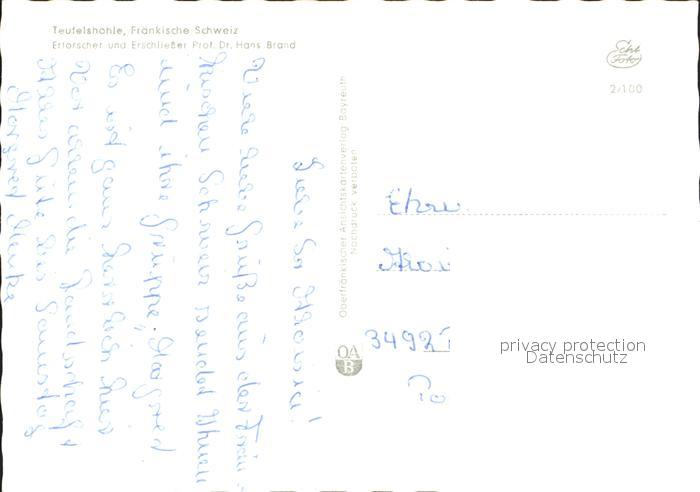 Teufelshöhle, Fränkische Schweiz
Erforscher und Erschließer Prof. Dr. Hans Brand
Echt Foto
2/100
Oberfränkischer Ansichtskartenverlag Bayreuth
Nachdruck verboten
OAB
Liebe
Viele liebe Grüße aus der Frän-
kischen Schweiz sendet Ihnen
und ihre Gruppe, Margret
Es ist ganz herrlich hier
Vor allem die Landschaft
Alles Gute bis Samstag
Margret
3492
privacy protection
Datenschutz